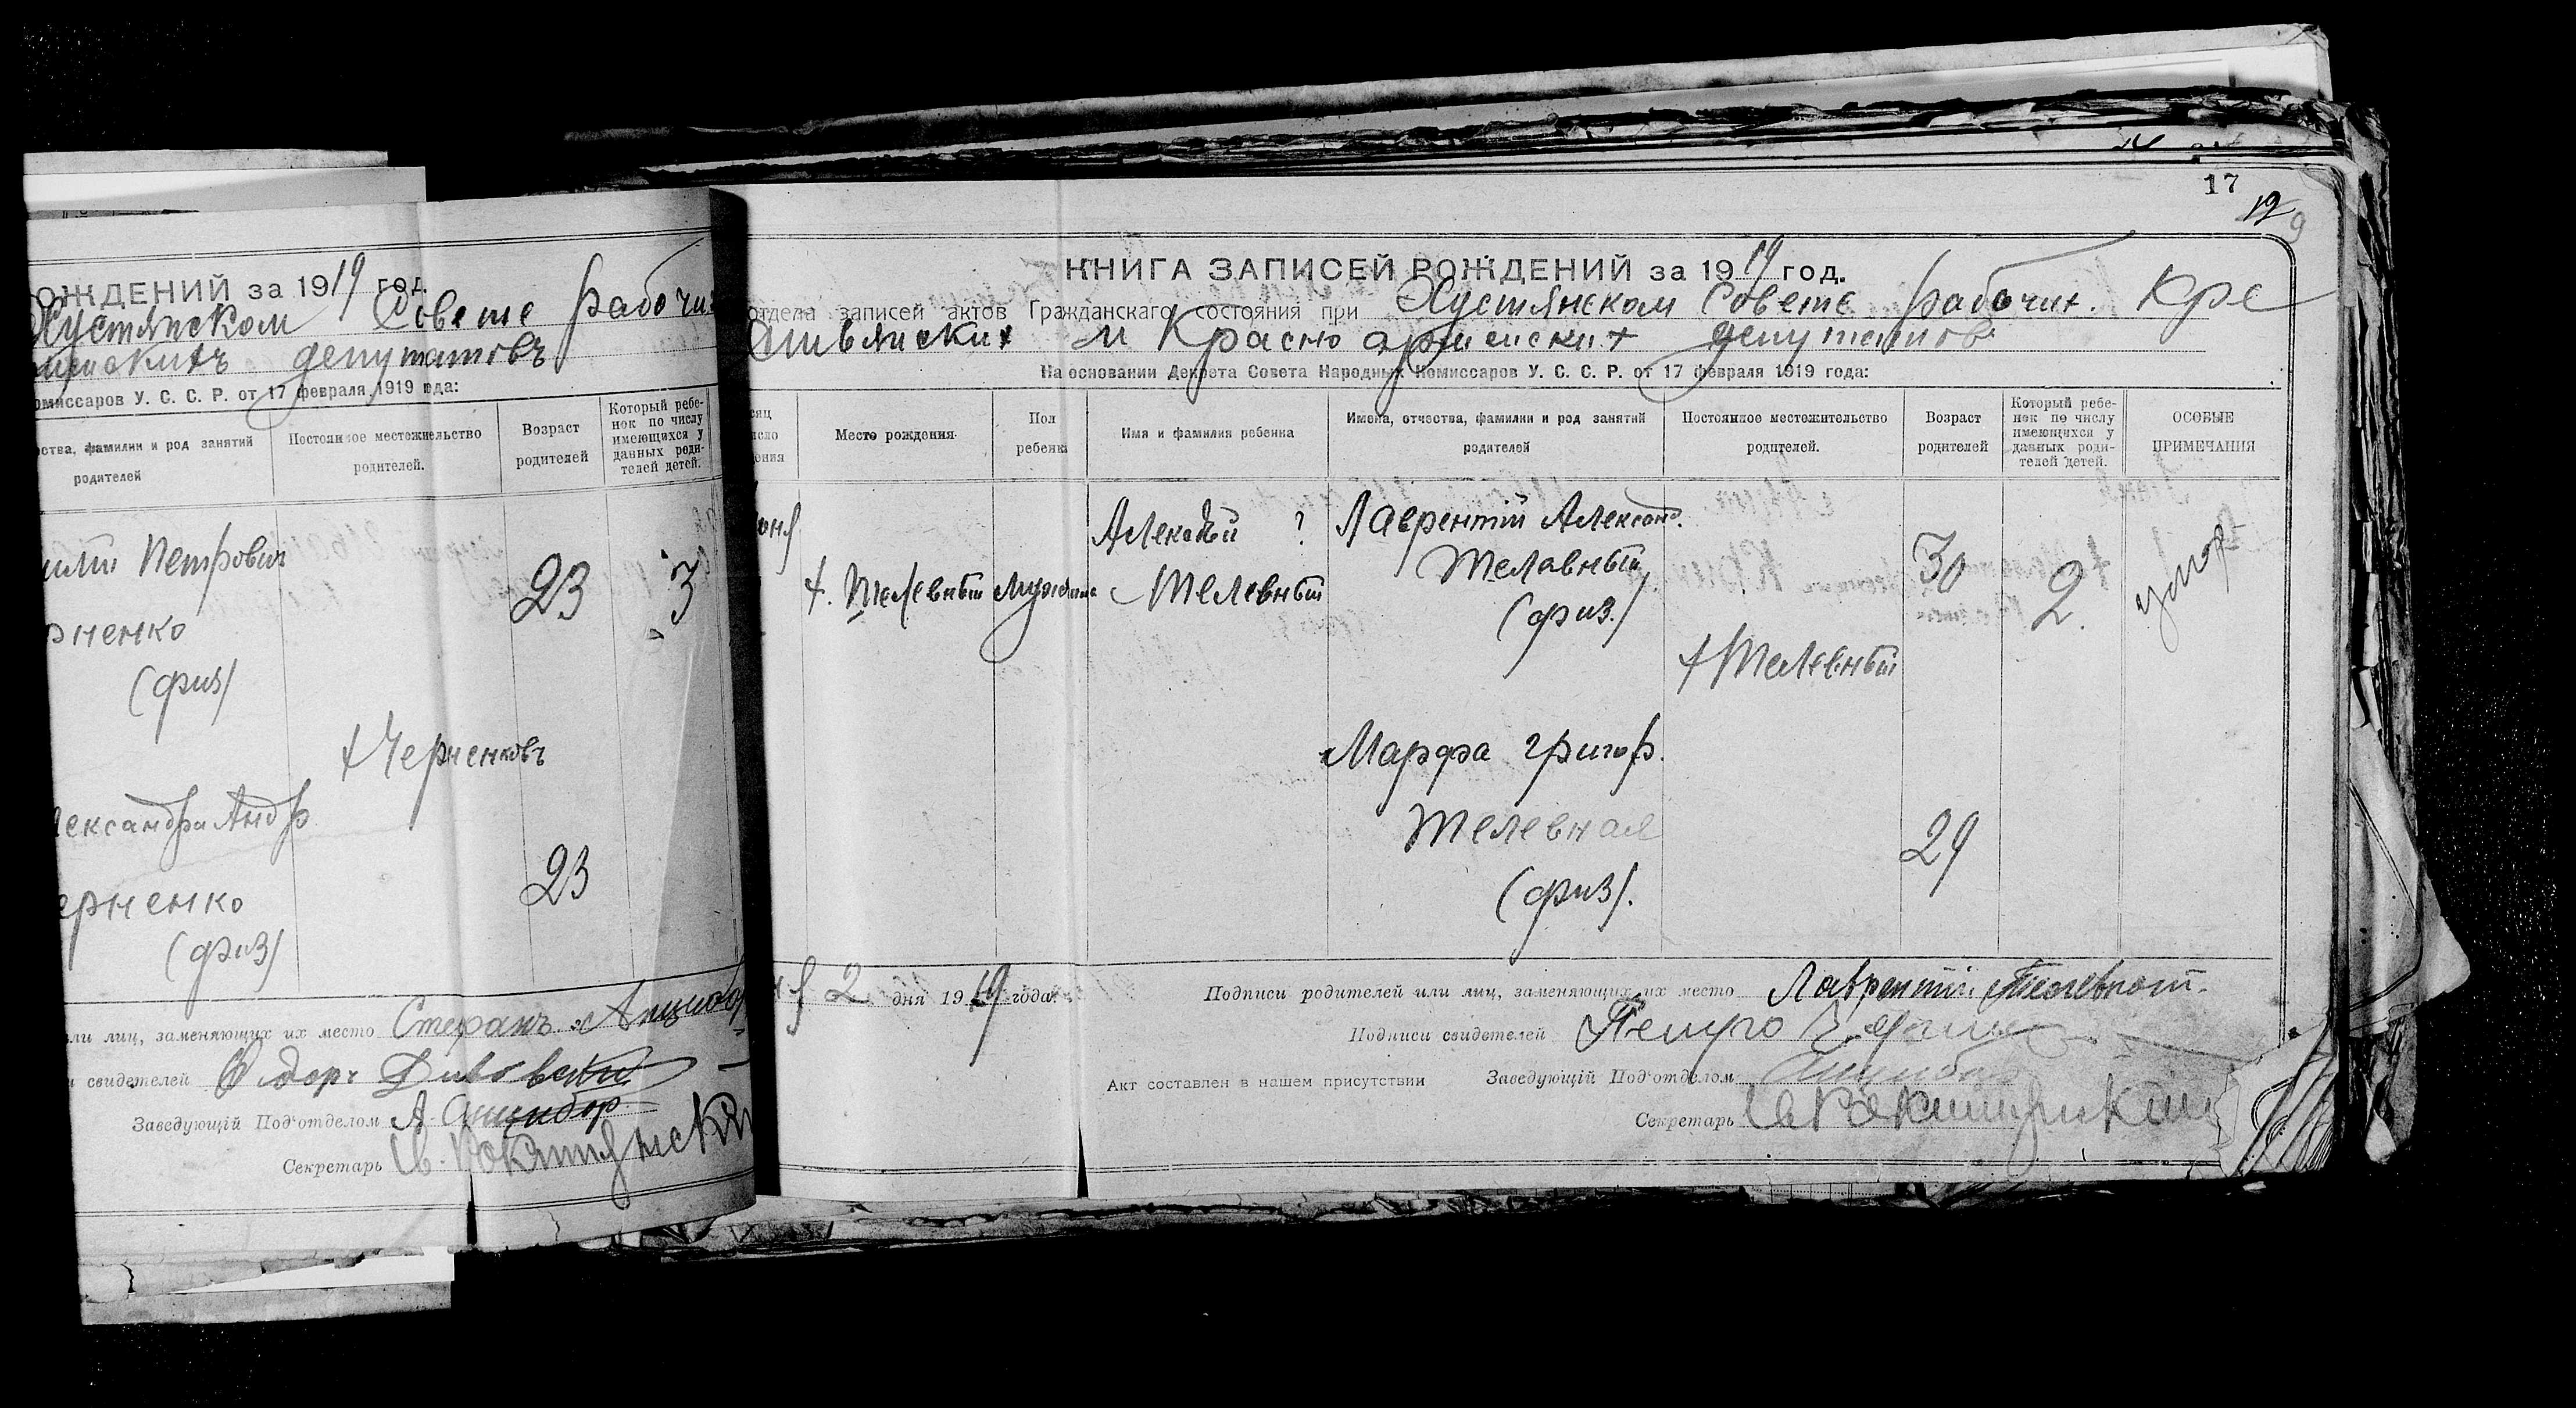 ОЖДЕНИЙ за 1919 год.
Хустянском Совете рабочи
депутатовъ
омиссаров У. С. С. Р. от 17 февраля 1919 года:
ства, фамилии и род занятий родителей
Постоянное местожительство родителей.
Возраст родителей
Который ребе-
нок по числу
имеющихся у
данных роди-
телей детей.
Петрович
рненко
(физ)
23
3
х Черненковъ
лександра Андр
ерненко
(физ)
23
или лиц, заменяющих их место Стефанъ
и свидетелей
Заведующій Под'отделом А.
Секретарь
17
КНИГА ЗАПИСЕЙ РОЖДЕНИЙ за 1919 год.
отдела записей актов Гражданскаго состояния при Хустянском Совете рабочих. Кре
и Красно армейских депутатов
На основании Декрета Совета Народных Комиссаров У. С. С. Р. от 17 февраля 1919 года:
Место рождения.
Пол ребенка
Имя и фамилия ребенка
Имена, отчества, фамилии и род занятий родителей
Постоянное местожительство родителей.
Возраст родителей
Который ребе-
нок по числу
имеющихся у
данных роди-
телей детей.
ОСОБЫЕ ПРИМЕЧАНИЯ
х. Телевный
Алексѣй ?
Телевный
Лаврентій Александ.
Телевный
(физ.)
х Телевный
30
2.
умер
Марфа Григор.
Телевная
(физ).
29
2 дня 1919 года
Подписи родителей или лиц, заменяющих их место Лаврентій Телевной
Подписи свидетелей Петро
Акт составлен в нашем присутствии
Заведующій Под'отделом
Секретарь